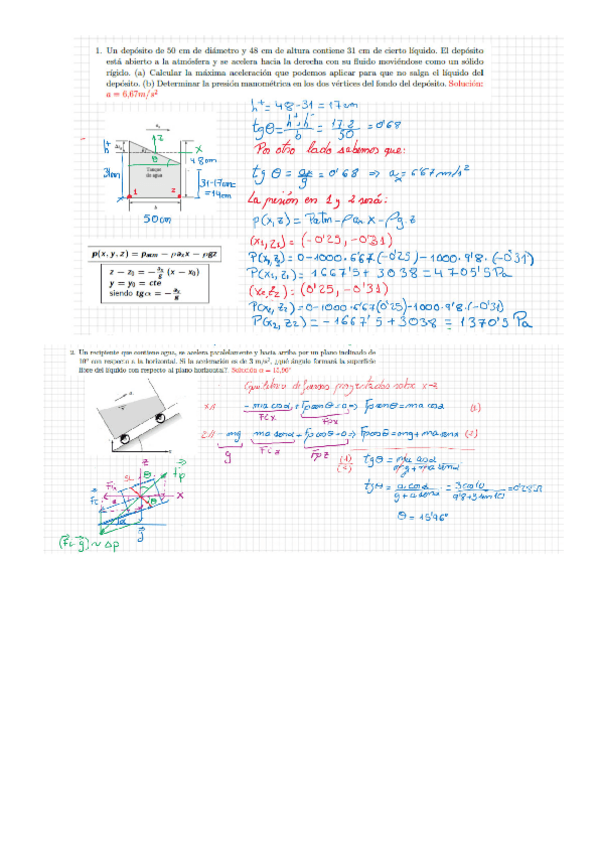 1. Un depósito de 50 cm de diámetro y 48 cm de altura contiene 31 cm de cierto líquido. El depósito
está abierto a la atmósfera y se acelera hacia la derecha con su fluido moviéndose como un sólido
rígido. (a) Calcular la máxima aceleración que podemos aplicar para que no salga el líquido del
depósito. (b) Determinar la presión manométrica en los dos vértices del fondo del depósito. Solución:
a = 6,67m/s²
h⁺ = 48-31 = 17cm
tgθ = (h⁺+h⁻)/b = 17·2/50 = 0'68
Por otro lado sabemos que:
tgθ = ax/g = 0'68 ⇒ ax = 6'67 m/s²
La presión en 1 y 2 será:
p(x,z) = Patm - ρax x - ρg z
(x1,z1) = (-0'25, -0'31)
P(x1,z1) = 0-1000·6'67(-0'25)-1000·9'8·(-0'31)
P(x1,z1) = 1667'5 + 3038 = 4705'5 Pa
(x2,z2) = (0'25, -0'31)
P(x2,z2) = 0-1000·6'67(0'25)-1000·9'8·(-0'31)
P(x2,z2) = -1667'5 + 3038 = 1370'5 Pa
h⁺
z
x
θ
48cm
31cm
Tanque
de agua
31-17cm=
=14cm
1
2
b
50cm
p(x, y, z) = patm − ρax x − ρgz
z − z0 = − ax/g (x − x0)
y = y0 = cte
siendo tgα = − ax/g
Un recipiente que contiene agua, se acelera paralelamente y hacia arriba por un plano inclinado de
con respecto a la horizontal. Si la aceleración es de 3 m/s², ¿qué ángulo formará la superficie
libre del líquido con respecto al plano horizontal?. Solución
Equilibrio de fuerzas proyectadas sobre x-z
- ma cosα + Fp senθ = 0 ⇒ Fp senθ = ma cosα (1)
FCx
Fpx
- mg - ma senα + Fp cosθ = 0 ⇒ Fp cosθ = mg + ma senα (2)
g
FCz
Fpz
(1)/(2) tgθ = ma cosα / mg + ma senα
= a cosα / g + a senα
θ = 15'96°
z
θ
x
α
g